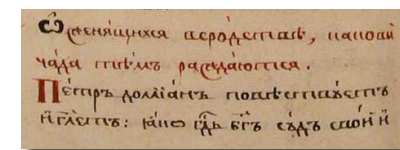 Ѿ женящихся в сродствѣ, и каковы
чада тѣмъ раждаются.
Петръ домїанъ повѣствꙋетъ
и҆ глетъ: ꙗко гдь бгъ сꙋдъ свой и҆